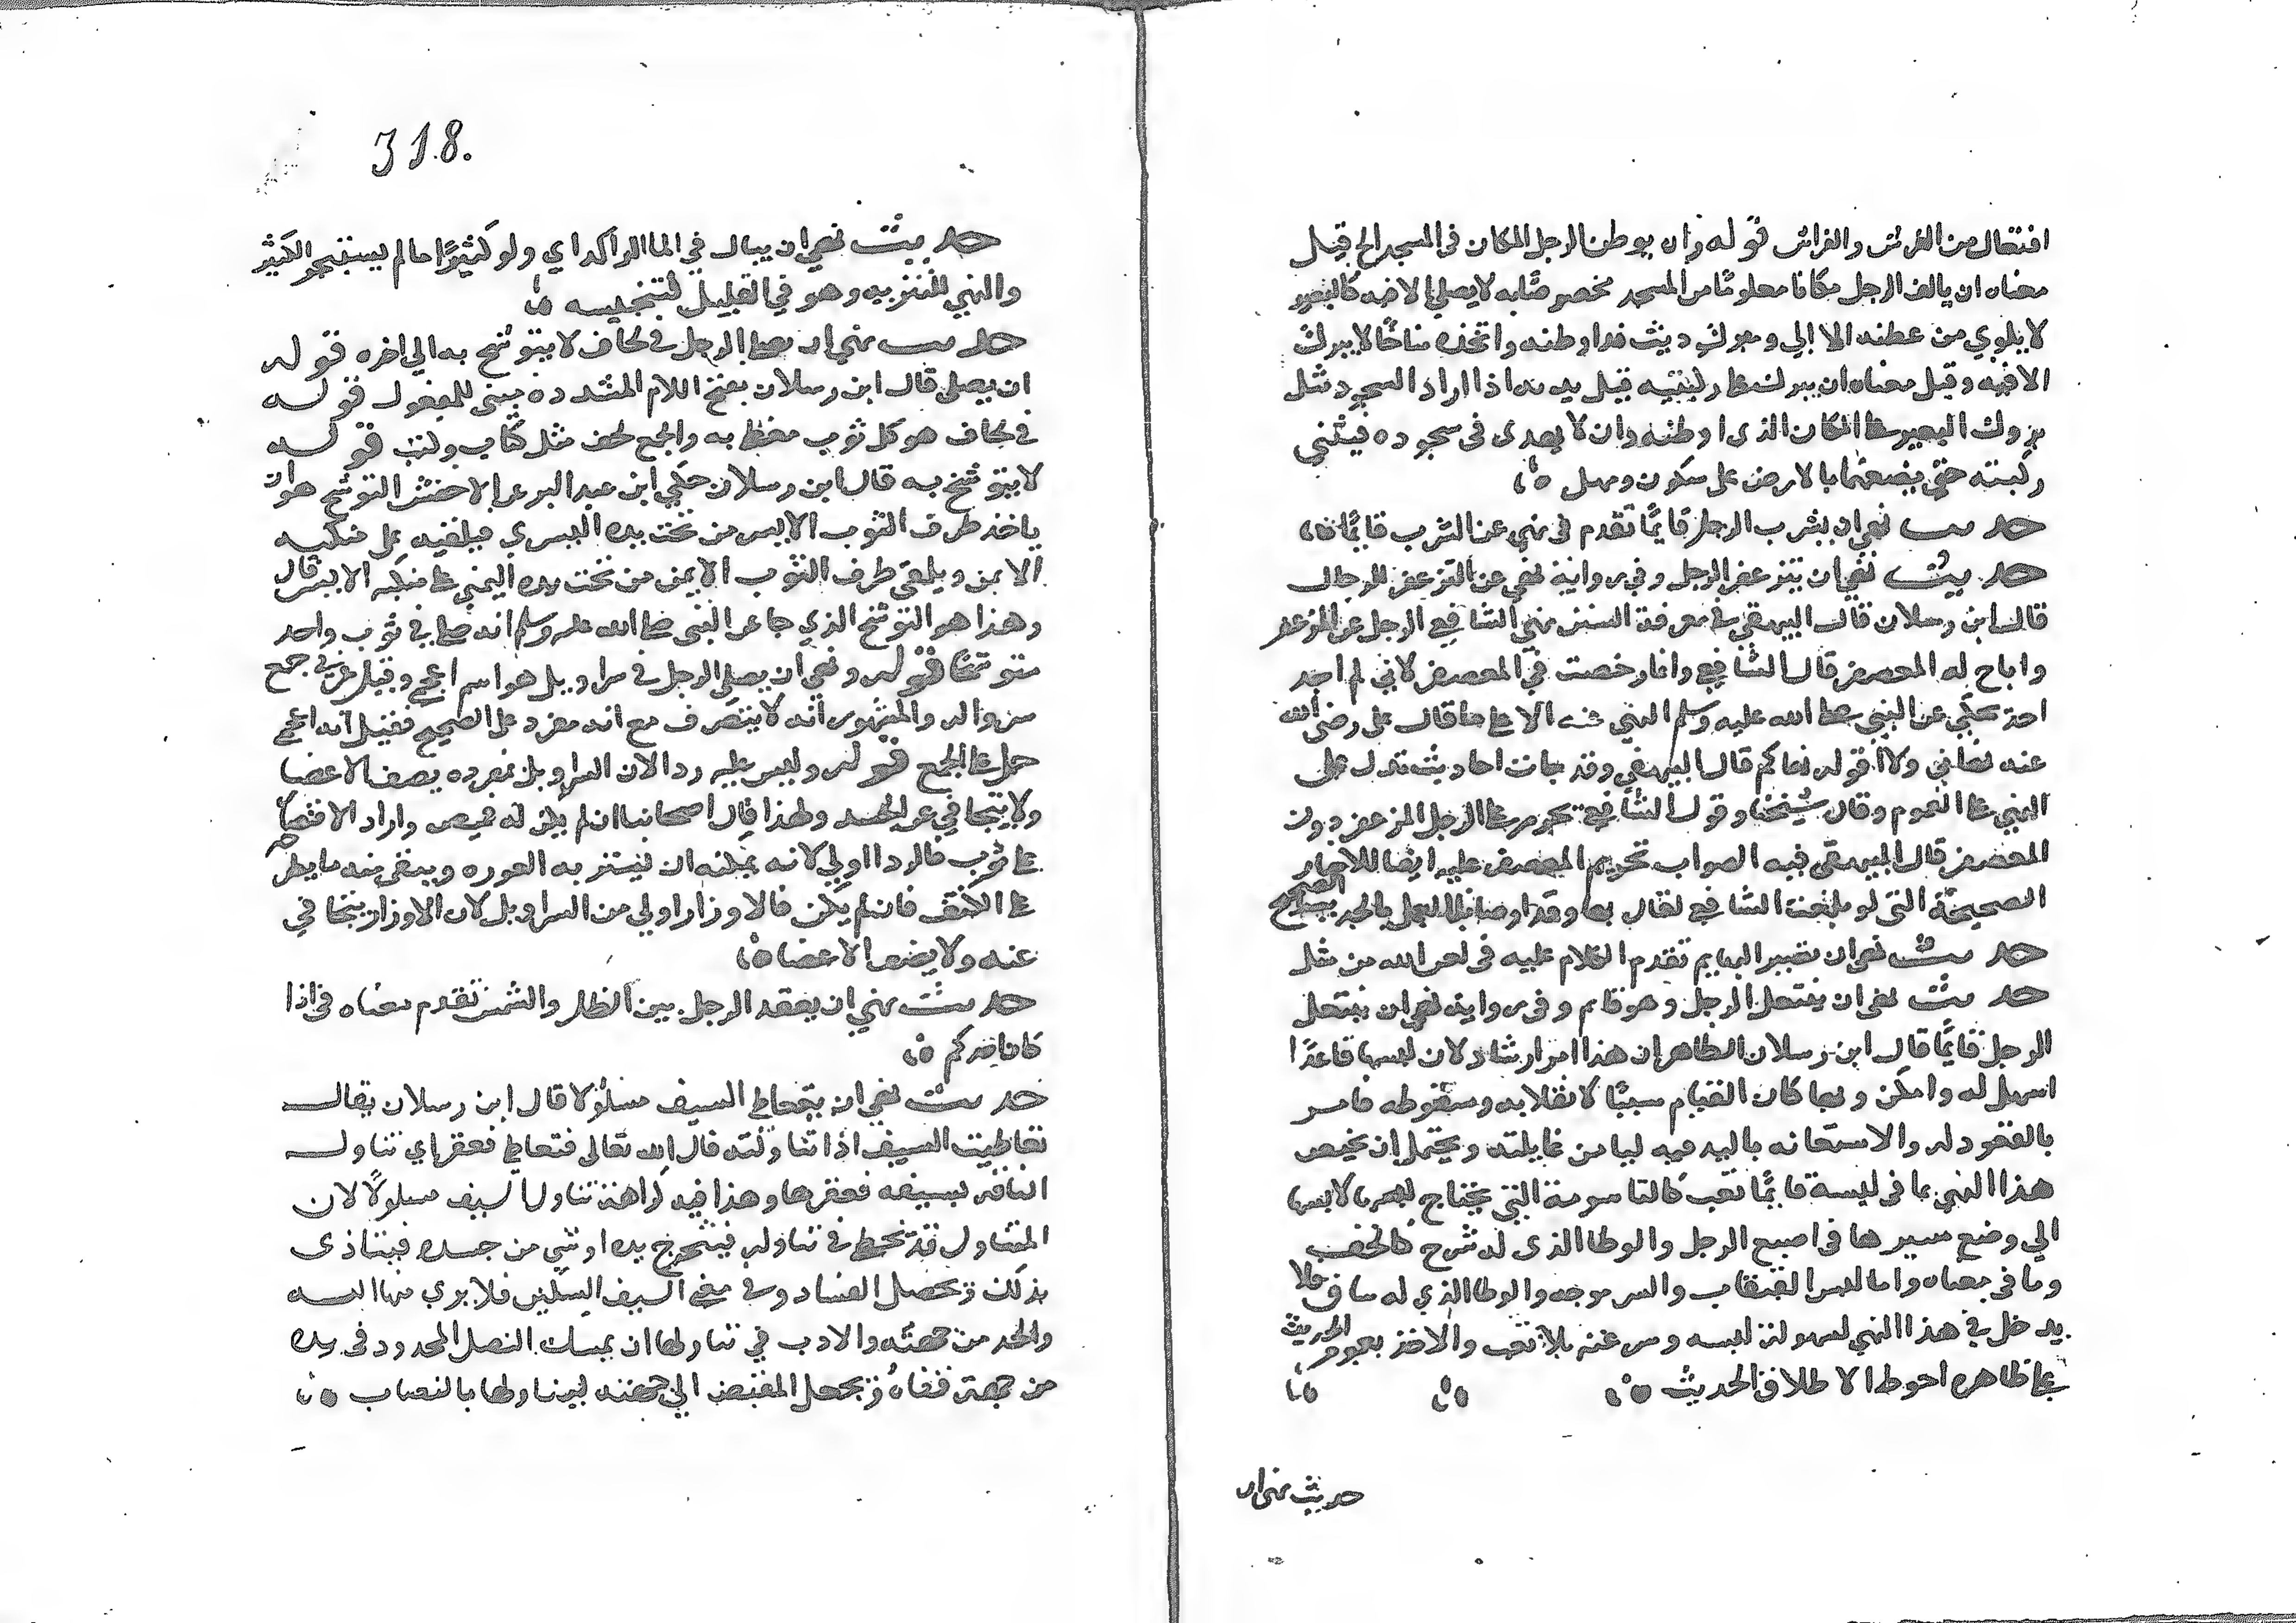 افتعال من الفرش والفراش قوله وان يوطن الرجل المكان في المسجد الخ قيل
معناه ان يالف الرجل مكانا معلومًا من المسجد مخصوصًا به لا يصلي الا فيه كالبعير
لا يلوي من عطنه الا الي ومبرك دمث قد اوطنه واتخذه مناخًا لا يبرك
الا فيه وقيل معناه ان يبرك على ركبتيه قبل يديه اذا اراد السجود مثل
بروك البعير على المكان الذي اوطنه وان لا يهوي في سجوده فيثني
ركبته حتى يضعهما بالارض على سكون ومهل
حديث نهى ان يشرب الرجل قايمًا تقدم في نهى عن الشرب قايمًا
حديث نهى ان يتزعفر الرجل وفي رواية نهى عن التزعفر للرجال
قال ابن رسلان قال البيهقي في معرفة السنن نهى الشافعي الرجل عن المزعفر
واباح له المعصفر قال الشافعي وانما رخصت في المعصفر لاني لم اجد
احدًا يحكي عن النبي صلى الله عليه وسلم النهي عنه الا على ما قال علي رضي الله
عنه نهاني ولا اقول نهاكم قال البيهقي وقد جات احاديث تدل على
النهي على العموم وقال شيخنا وقول الشافعي تحريم على الرجل المزعفر دون
المعصفر قال البيهقي فيه الصواب تحريم المعصفر عليه ايضا للاخبار
الصحيحة التي لو بلغت الشافعي لقال بها وقد اوصانا بالعمل بالحديث الصحيح
حديث نهى ان تصبر البهايم تقدم الكلام عليه في لعن الله من مثل
حديث نهى ان ينتعل الرجل وهو قايم وفي رواية نهى ان ينتعل
الرجل قايمًا قال ابن رسلان الظاهر ان هذا امر ارشاد لان لبسها قاعدًا
اسهل له وامكن وربما كان القيام سببًا لانقلابه وسقوطه فامر
بالقعود له والاستعانة باليد فيه ليامن غايلته ويحتمل ان يختص
هذا النهي بما في لبسه قايمًا تعب كالتاسومة التي يحتاج لابسها
الي وضع سيرها في اصبع الرجل والوطا الذي له شرج كالخف
وما في معناه واما لبس القبقاب والسرموجه والوطا الذي له ساق فلا
يدخل في هذا النهي لسهولة لبسه وسرعته بلا تعب والاخذ بعموم الحديث
على ظاهره احوط لاطلاق الحديث
حديث نهى ان
318.
حديث نهى ان يبال في الما الراكد اي ولو كثيرًا ما لم يستبحر الكثير
والنهي للتنزيه وهو في القليل لتنجيسه
حديث نهى ان يصلي الرجل في لحاف لا يتوشح به الي اخره قوله
ان يصلى قال ابن رسلان بفتح اللام المشددة مبنى للمفعول قوله
في لحاف هو كل ثوب يتغطى به والجمع لحف مثل كتاب وكتب قوله
لا يتوشح به قال ابن رسلان حكي ابن عبد البر عن الاخفش التوشح هو ان
ياخذ طرف الثوب الايسر من تحت يده اليسري فيلقيه على منكبه
الايمن ويلقى طرف الثوب الايمن من تحت يده اليمني على منكبه الايسر قال
وهذا هو التوشح الذي جا عن النبي صلى الله عليه وسلم انه صلى في ثوب واحد
متوشحًا قوله ونهى ان يصلي الرجل في سراويل هو اسم اعجمي وقيل عربي جمع
سروالة والمشهور انه لا ينصرف مع انه مفرد على الصحيح فقيل انه اعجمي
حمل على الجمع قوله وليس عليه ردا لان السراويل بمفرده يصف الاعضا
ولا يتجافي عن الجسد ولهذا قال اصحابنا ان لم يكن له قميص واراد الاقتصار
على ثوب فالردا اولي لانه يمكنه ان يستتر به العورة ويبقى منه ما يطرحه
على الكتف فان لم يكن فالازار اولي من السراويل لان الازار يتجافي
عنه ولا يصف الاعضا
حديث نهى ان يقعد الرجل بين الظل والشمس تقدم معناه في اذا
كان احدكم
حديث نهى ان يتعاطى السيف مسلولًا قال ابن رسلان يقال
تعاطيت السيف اذا تناولته قال الله تعالى فتعاطى فعقر اي تناول
الناقة بسيفه فعقرها وهذا فيه كراهة تناول السيف مسلولًا لان
المتناول قد يخطي في تناوله فيجرح يده او شي من جسده فيتاذى
بذلك ويحصل الفساد وفي معنى السيف السكين فلا يرمي بها اليه
والحد من جهته والادب في تناولها ان يمسك النصل المحدود في يده
من جهة قفاه ويجعل المقبض الي جهته ليتناولها بالنصاب